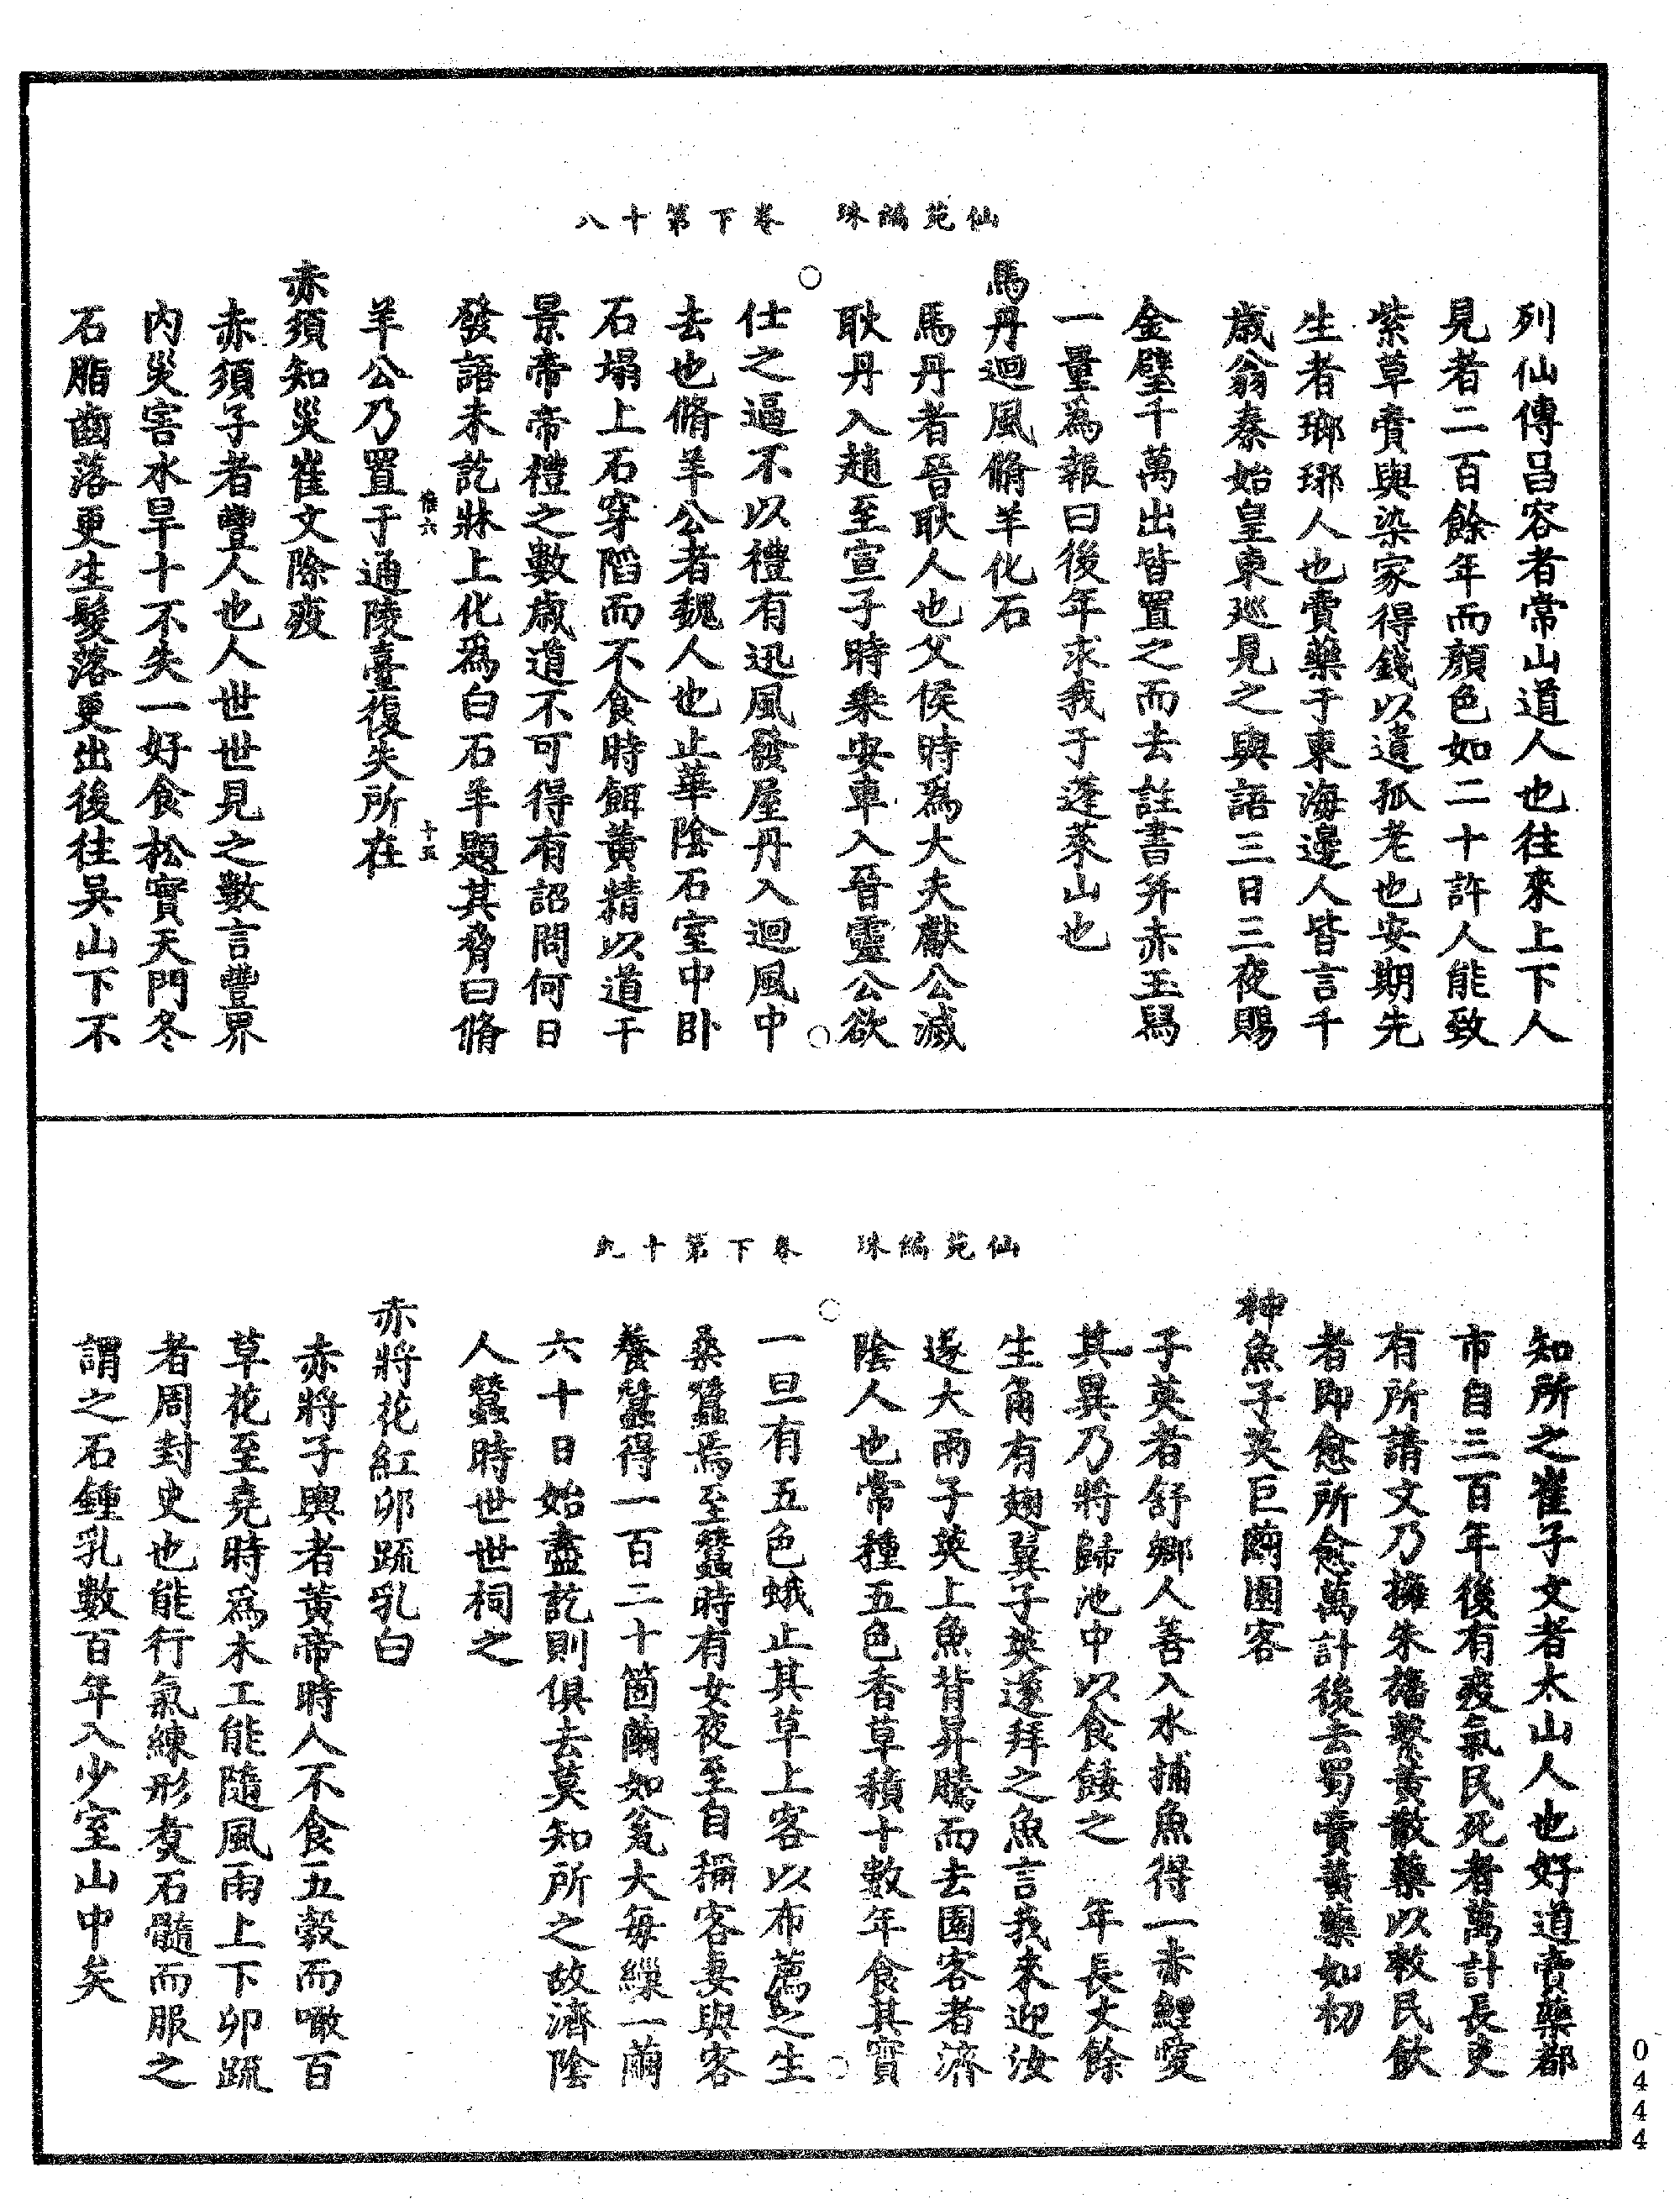 仙苑編珠　卷下第十八
列仙傳昌容者常山道人也往來上下人
見者二百餘年而顏色如二十許人能致
紫草賣與染家得錢以遺孤老也安期先
生者瑯琊人也賣藥于東海邊人皆言千
歲翁秦始皇東巡見之與語三日三夜賜
金璧千萬出皆置之而去註書并赤玉舄
一量為報曰後年求我于蓬萊山也
馬丹迴風脩羊化石
馬丹者晉耿人也父侯時為大夫獻公滅
耿丹入趙至宣子時乘安車入晉靈公欲
仕之逼不以禮有迅風發屋丹入迴風中
去也脩羊公者魏人也止華陰石室中卧
石塌上石穿陷而不食時餌黃精以道干
景帝帝禮之數歲道不可得有詔問何日
發語未訖牀上化為白石羊題其脅曰脩
惟六　十五
羊公乃置于通陵臺復失所在
赤須知災崔文除疫
赤須子者豐人也人世世見之數言豐界
內災害水旱十不失一好食松實天門冬
石脂齒落更生髮落更出後往吳山下不
仙苑編珠　卷下第十九
知所之崔子文者太山人也好道賣藥都
市自三百年後有疫氣民死者萬計長吏
有所請文乃擁朱旛繫黃散藥以救民飲
者即愈所愈萬計後去蜀賣黃藥如初
神魚子英巨繭園客
子英者舒鄉人善入水捕魚得一赤鯉愛
其異乃將歸池中以食餧之　年長丈餘
生角有翅翼子英遂拜之魚言我來迎汝
遂大雨子英上魚背昇騰而去園客者濟
陰人也常種五色香草積十數年食其實
一旦有五色蛾止其草上客以布薦之生
桑蠶焉至蠶時有女夜至自稱客妻與客
養蠶得一百二十箇繭如瓮大每繅一繭
六十日始盡訖則俱去莫知所之故濟陰
人蠶時世世祠之
赤將花紅卯疏乳白
赤將子輿者黃帝時人不食五穀而噉百
草花至堯時為木工能隨風雨上下卯疏
者周封史也能行氣練形煑石髓而服之
謂之石鍾乳數百年入少室山中矣
0444